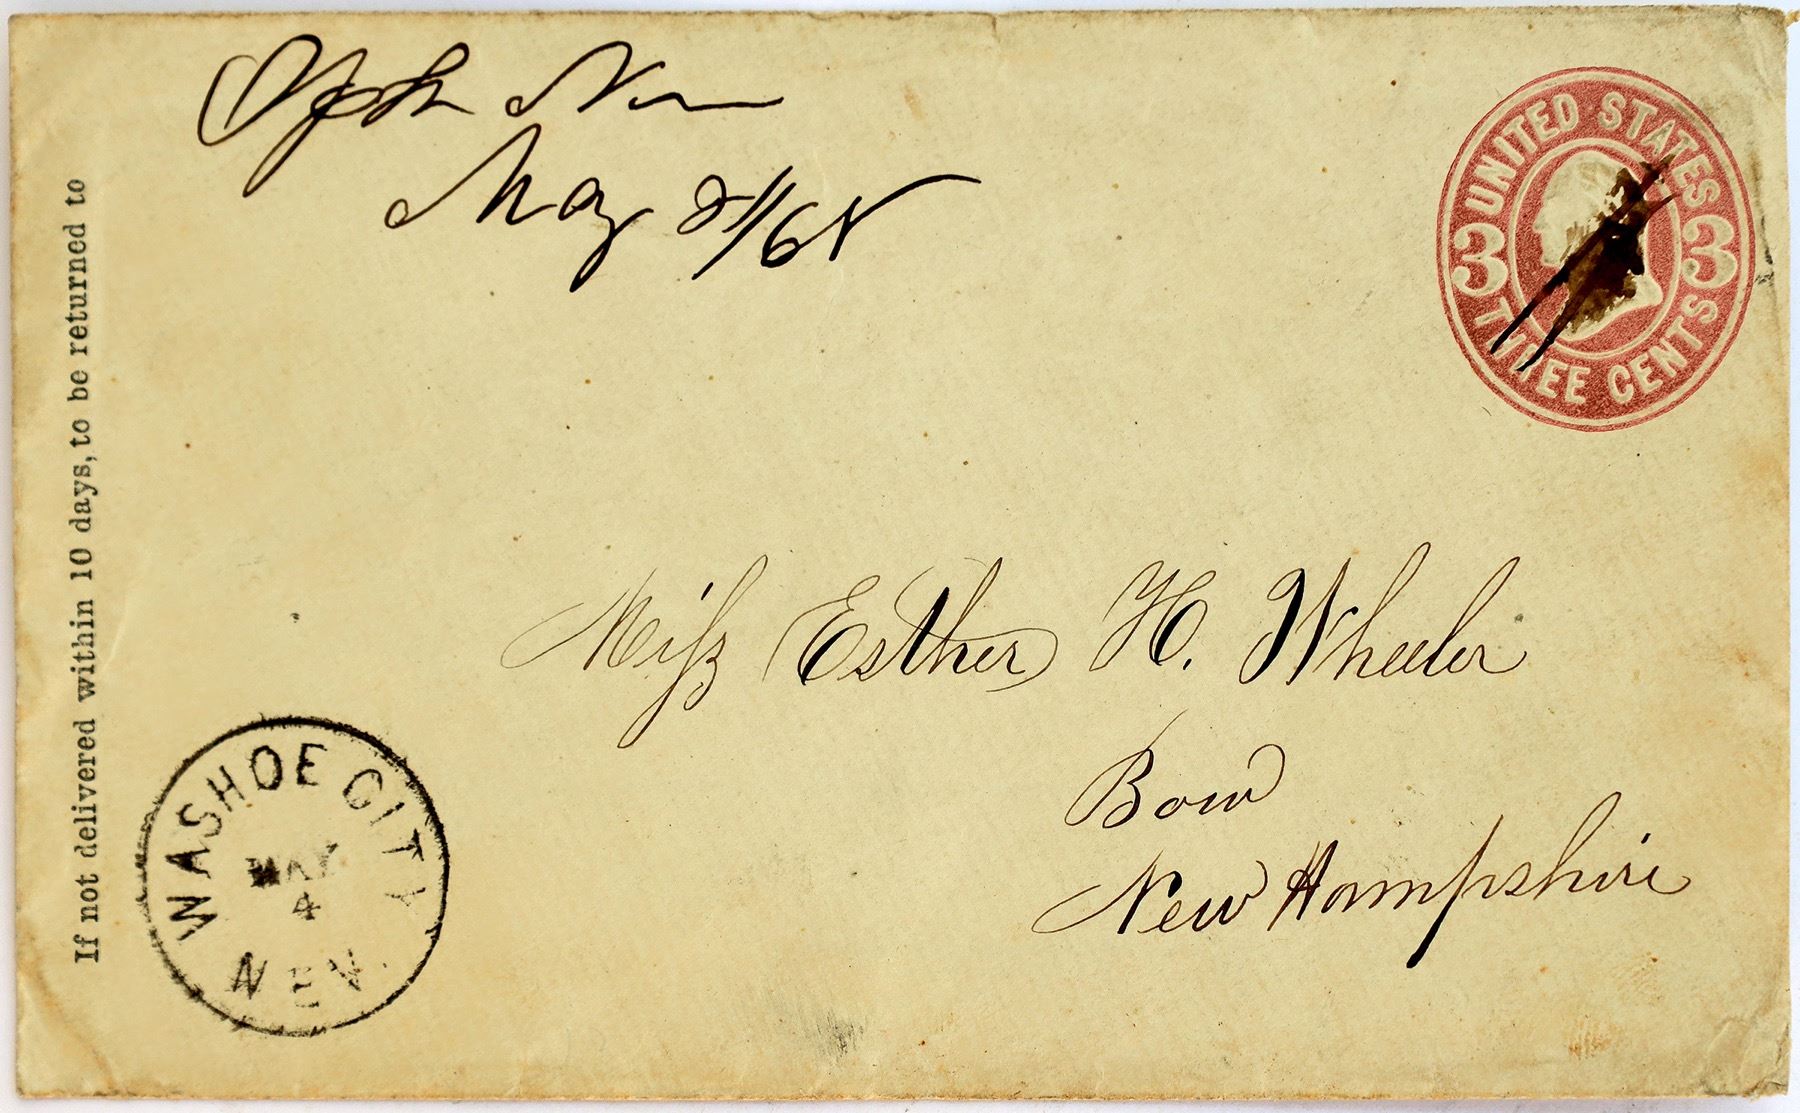 Ophir Nev
May 2/68
UNITED STATES
3 3
THREE CENTS
If not delivered within 10 days, to be returned to
Miss Esther H. Wheeler
Bow
New Hampshire
WASHOE CITY
MAY
4
NEV.